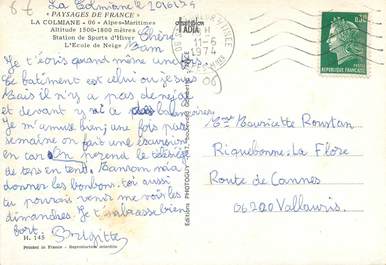 La Colmiane le 20/6/74
"PAYSAGES DE FRANCE"
LA COLMIANE - 06 - Alpes-Maritimes
Altitude 1500-1800 mètres
Station de Sports d'Hiver
L'Ecole de Neige
Chère
Mam
Je t'écris quand même une
Le batiment est celui ou je suis
Mais il n'y a pas de neige
et devant y'a des balançoires
Je m'amuse bien, une fois par
semaine on fait une escursion
en car. On prend le télésiège
de temps en temps. Maman m'a
donner les bonbons. toi aussi
tu pourrais venir me voir les
dimanches. Je t'embrasse bien
fort. Brigitte
H. 145
Printed in France - Reproduction interdite
11-6
1974
06
0,30
REPUBLIQUE FRANÇAISE
Mme Mauricette Roustan
Riquebonne La Flore
Route de Cannes
06200 Vallauris